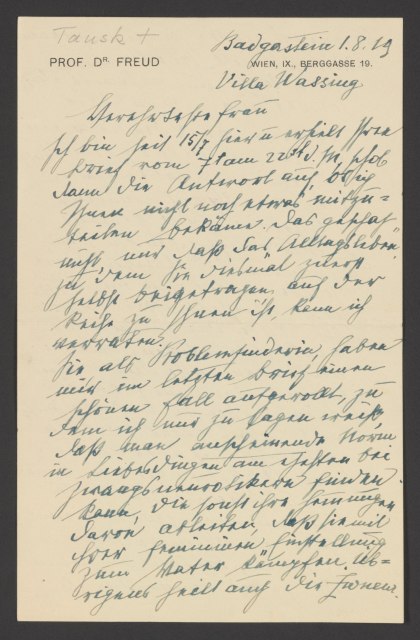 Tausk +
Badgastein 1.8.19
PROF. DR. FREUD
WIEN, IX., BERGGASSE 19.
Villa Wassing
Verehrteste Frau
Ich bin seit 15/7 hier u erhielt Ihren
Brief vom 7 am 22st d. M, schob
dann die Antwort auf, bis ich
Ihnen noch etwas mitzu=
teilen bekäme. Das geschah
nicht und daß das Alltagsleben
zu dem Sie diesmal zuerst
selbst beigetragen auf der
Reise zu Ihnen ist, kann ich
verraten.
Sie als Problemfinderin, haben
mir im letzten Brief einen
schönen Fall aufgerollt, zu
dem ich nur zu sagen weiß,
daß man anscheinende Norm
in Liebesdingen am ehesten bei
Zwangsneurotikern finden
kann, die sonst ihre Hemmungen
davon ableiten, daß sie mit
ihrer femininen Einstellung
zum Vater kämpfen. Üb-
rigens heilt auch die